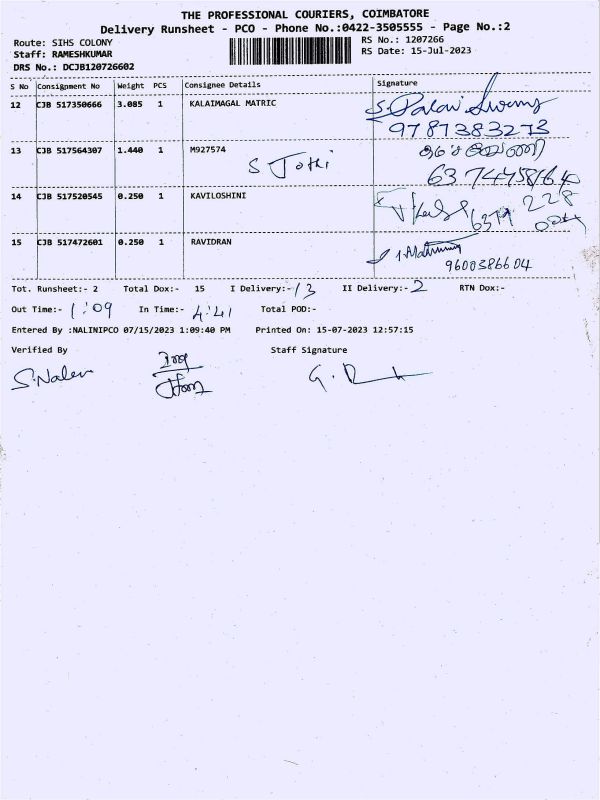 THE PROFESSIONAL COURIERS, COIMBATORE
Delivery Runsheet - PCO - Phone No.:0422-3505555 - Page No.:2
Route: SIHS COLONY
Staff: RAMESHKUMAR
DRS No.: DCJB120726602
RS No.: 1207266
RS Date: 15-Jul-2023
S No Consignment No Weight PCS Consignee Details Signature
12 CJB 517350666 3.085 1 KALAIMAGAL MATRIC
9787383273
13 CJB 517564307 1.440 1 M927574
S Jothi
14 CJB 517520545 0.250 1 KAVILOSHINI
15 CJB 517472601 0.250 1 RAVIDRAN
9600386604
Tot. Runsheet:- 2 Total Dox:- 15 I Delivery:- 13 II Delivery:- 2 RTN Dox:-
Out Time:- 1:09 In Time:- 4:41 Total POD:-
Entered By :NALINIPCO 07/15/2023 1:09:40 PM Printed On: 15-07-2023 12:57:15
Verified By Staff Signature